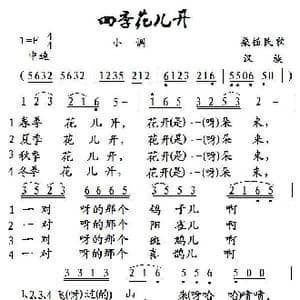 四季花儿开
1=F 4/4 小调 桑植民歌
中速 汉族
(5632 5632 1235 212 | 6123 216 | 5506 50)
1 2 3 2 1 6 5 3 2 1 2 1 6 5
1 春季 花 儿 开, 花开(是)一(呀)朵 来,
2 夏季 花 儿 开, 花开(是)一(呀)朵 来,
3 秋季 花 儿 开, 花开(是)一(呀)朵 来,
4 冬季 花 儿 开, 花开(是)一(呀)朵 来,
3 5 2 3 5 5 5 3 2 1 6 5
1 一 对 呀的那个 鸽 子儿 啊
2 一 对 呀的那个 阳 雀儿 啊
3 一 对 呀的那个 斑 鸠儿 啊
4 一 对 呀的那个 喜 鹊儿 啊
1.2.3.4 飞(呀)过(的) 来(呀哈